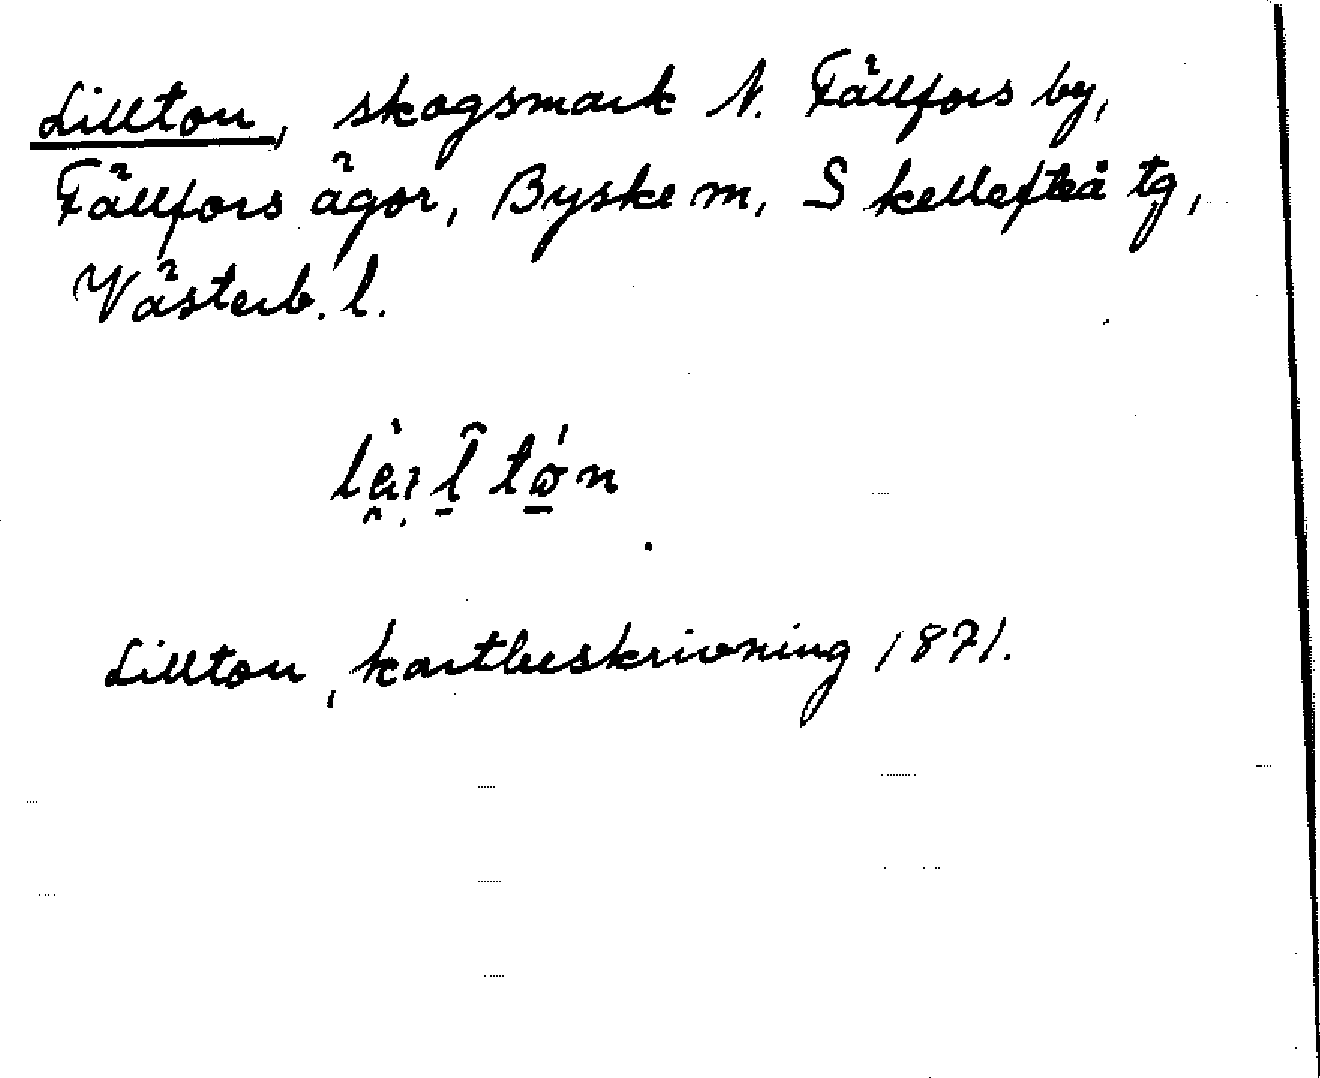 Lillton, skogsmark N. Fällfors by,
Fällfors ägor, Byske m, Skellefteå tg,
Västerb. l.
Lillton, kartbeskrivning 1871.